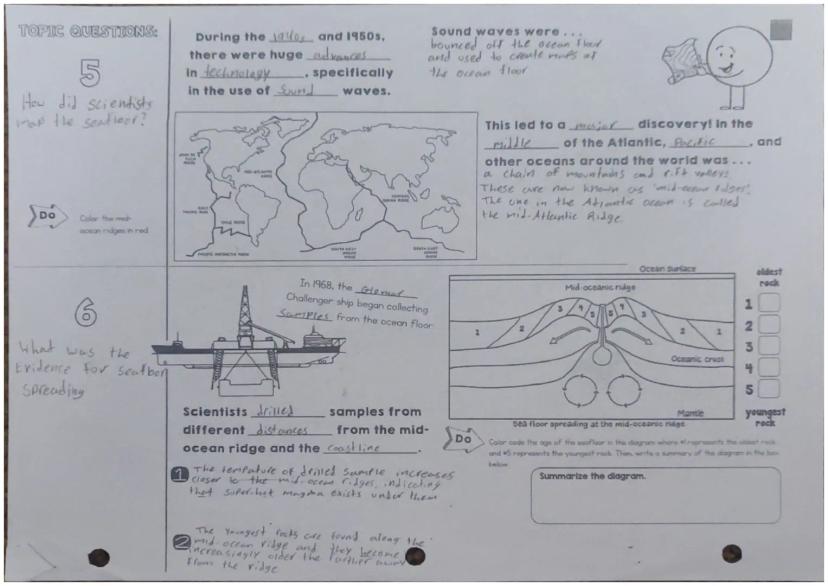 TOPIC QUESTIONS:
5
How did scientists
map the seafloor?
Do
Color the mid-
ocean ridges in red.
During the 1940s and 1950s,
there were huge advances
in technology, specifically
in the use of Sound waves.
Sound waves were . . .
bounced off the ocean floor
and used to create maps of
the ocean floor
This led to a major discovery! In the
middle of the Atlantic, Pacific, and
other oceans around the world was . . .
a chain of mountains and rift valleys
These are now known as 'mid-ocean ridges'.
The one in the Atlantic ocean is called
the mid-Atlantic Ridge.
MID-ATLANTIC
RIDGE
EAST
PACIFIC RISE
CHILE RIDGE
PACIFIC ANTARCTIC RIDGE
SOUTH WEST
INDIAN
RIDGE
SOUTH EAST
INDIAN RIDGE
6
What was the
Evidence for seafloor
spreading
In 1968, the Glomar
Challenger ship began collecting
Samples from the ocean floor
Scientists drilled samples from
different distances from the mid-
ocean ridge and the coastline.
1 The tempature of drilled sample increases
closer to the mid-ocean ridges, indicating
that super-hot magma exists under them
2 The youngest rocks are found along the
mid-ocean ridge and they become
increasingly older the further away
from the ridge
Ocean Surface
Mid-oceanic ridge
1 2 3 4 5 5 4 3 2 1
Oceanic crust
Mantle
Sea floor spreading at the mid-oceanic ridge
oldest
rock
1
2
3
4
5
youngest
rock
Do
Color code the age of the seafloor in the diagram where #1 represents the oldest rock
and #5 represents the youngest rock. Then, write a summary of the diagram in the box
below
Summarize the diagram.